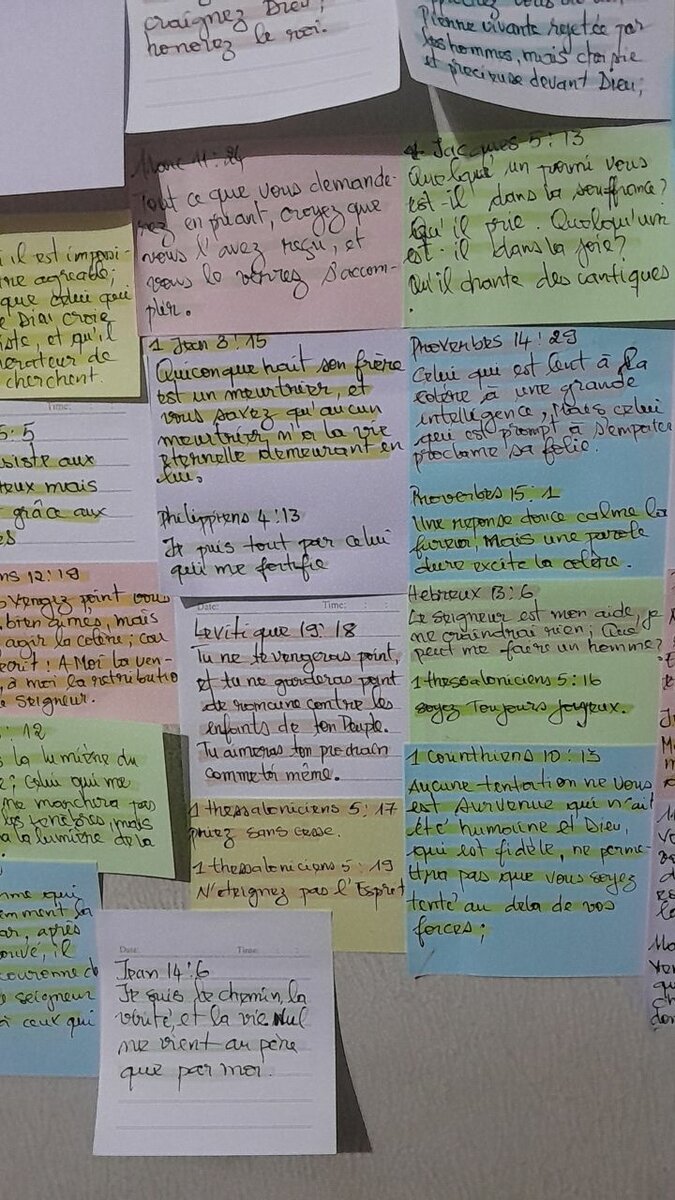 craignez Dieu;
honorez le roi.
vivante rejetée par
les hommes, mais choisie
et precieuse devant Dieu;
Marc 11:24
Tout ce que vous demande-
rez en priant, croyez que
vous l'avez reçu, et
vous le verrez s'accom-
plir.
Jacques 5:13
Quelqu'un parmi vous
est-il dans la souffrance?
Qu'il prie. Quelqu'un
est-il dans la joie?
Qu'il chante des cantiques
.
il est impossi-
agreable;
que celui qui
Dieu croie
et qu'il
de
cherchent.
1 Jean 3:15
Quiconque hait son frère
est un meurtrier, et
vous savez qu'aucun
meurtrier n'a la vie
eternelle demeurant en
lui.
Philippiens 4:13
Je puis tout par celui
qui me fortifie
Proverbes 14:29
Celui qui est lent à la
colère à une grande
intelligence, Mais celui
qui est prompt à s'emporter
proclame sa folie.
Proverbes 15:1
Une reponse douce calme la
fureur, Mais une parole
dure excite la colère.
Time:
5:5
aux
mais
grâce aux
12:19
vengez point vous
bien aimés, mais
agir la colère; car
! A Moi la ven-
à moi la retributio
Seigneur.
Date:
Time:
Levitique 19:18
Tu ne te vengeras point,
et tu ne garderas point
de rancune contre les
enfants de ton Peuple.
Tu aimeras ton prochain
comme toi même.
Hebreux 13:6
Le Seigneur est mon aide, je
ne craindrai rien; Que
peut me faire un homme?
1 thessaloniciens 5:16
soyez Toujours Joyeux.
12
la lumière du
; Celui qui me
ne marchera pas
mais
la lumière de la
1 thessaloniciens 5:17
priez sans cesse.
1 thessaloniciens 5:19
N'eteignez pas l'Esprit
1 Corinthiens 10:13
Aucune tentation ne Vous
est survenue qui n'ait
été humaine et Dieu,
qui est fidèle, ne perme-
ttra pas que vous soyez
tenté au dela de vos
forces;
qui
sa
après
il
couronne de
seigneur
à ceux qui
Date:
Time:
Jean 14:6
Je suis le chemin, la
vérité, et la vie Nul
ne vient au père
que par moi.